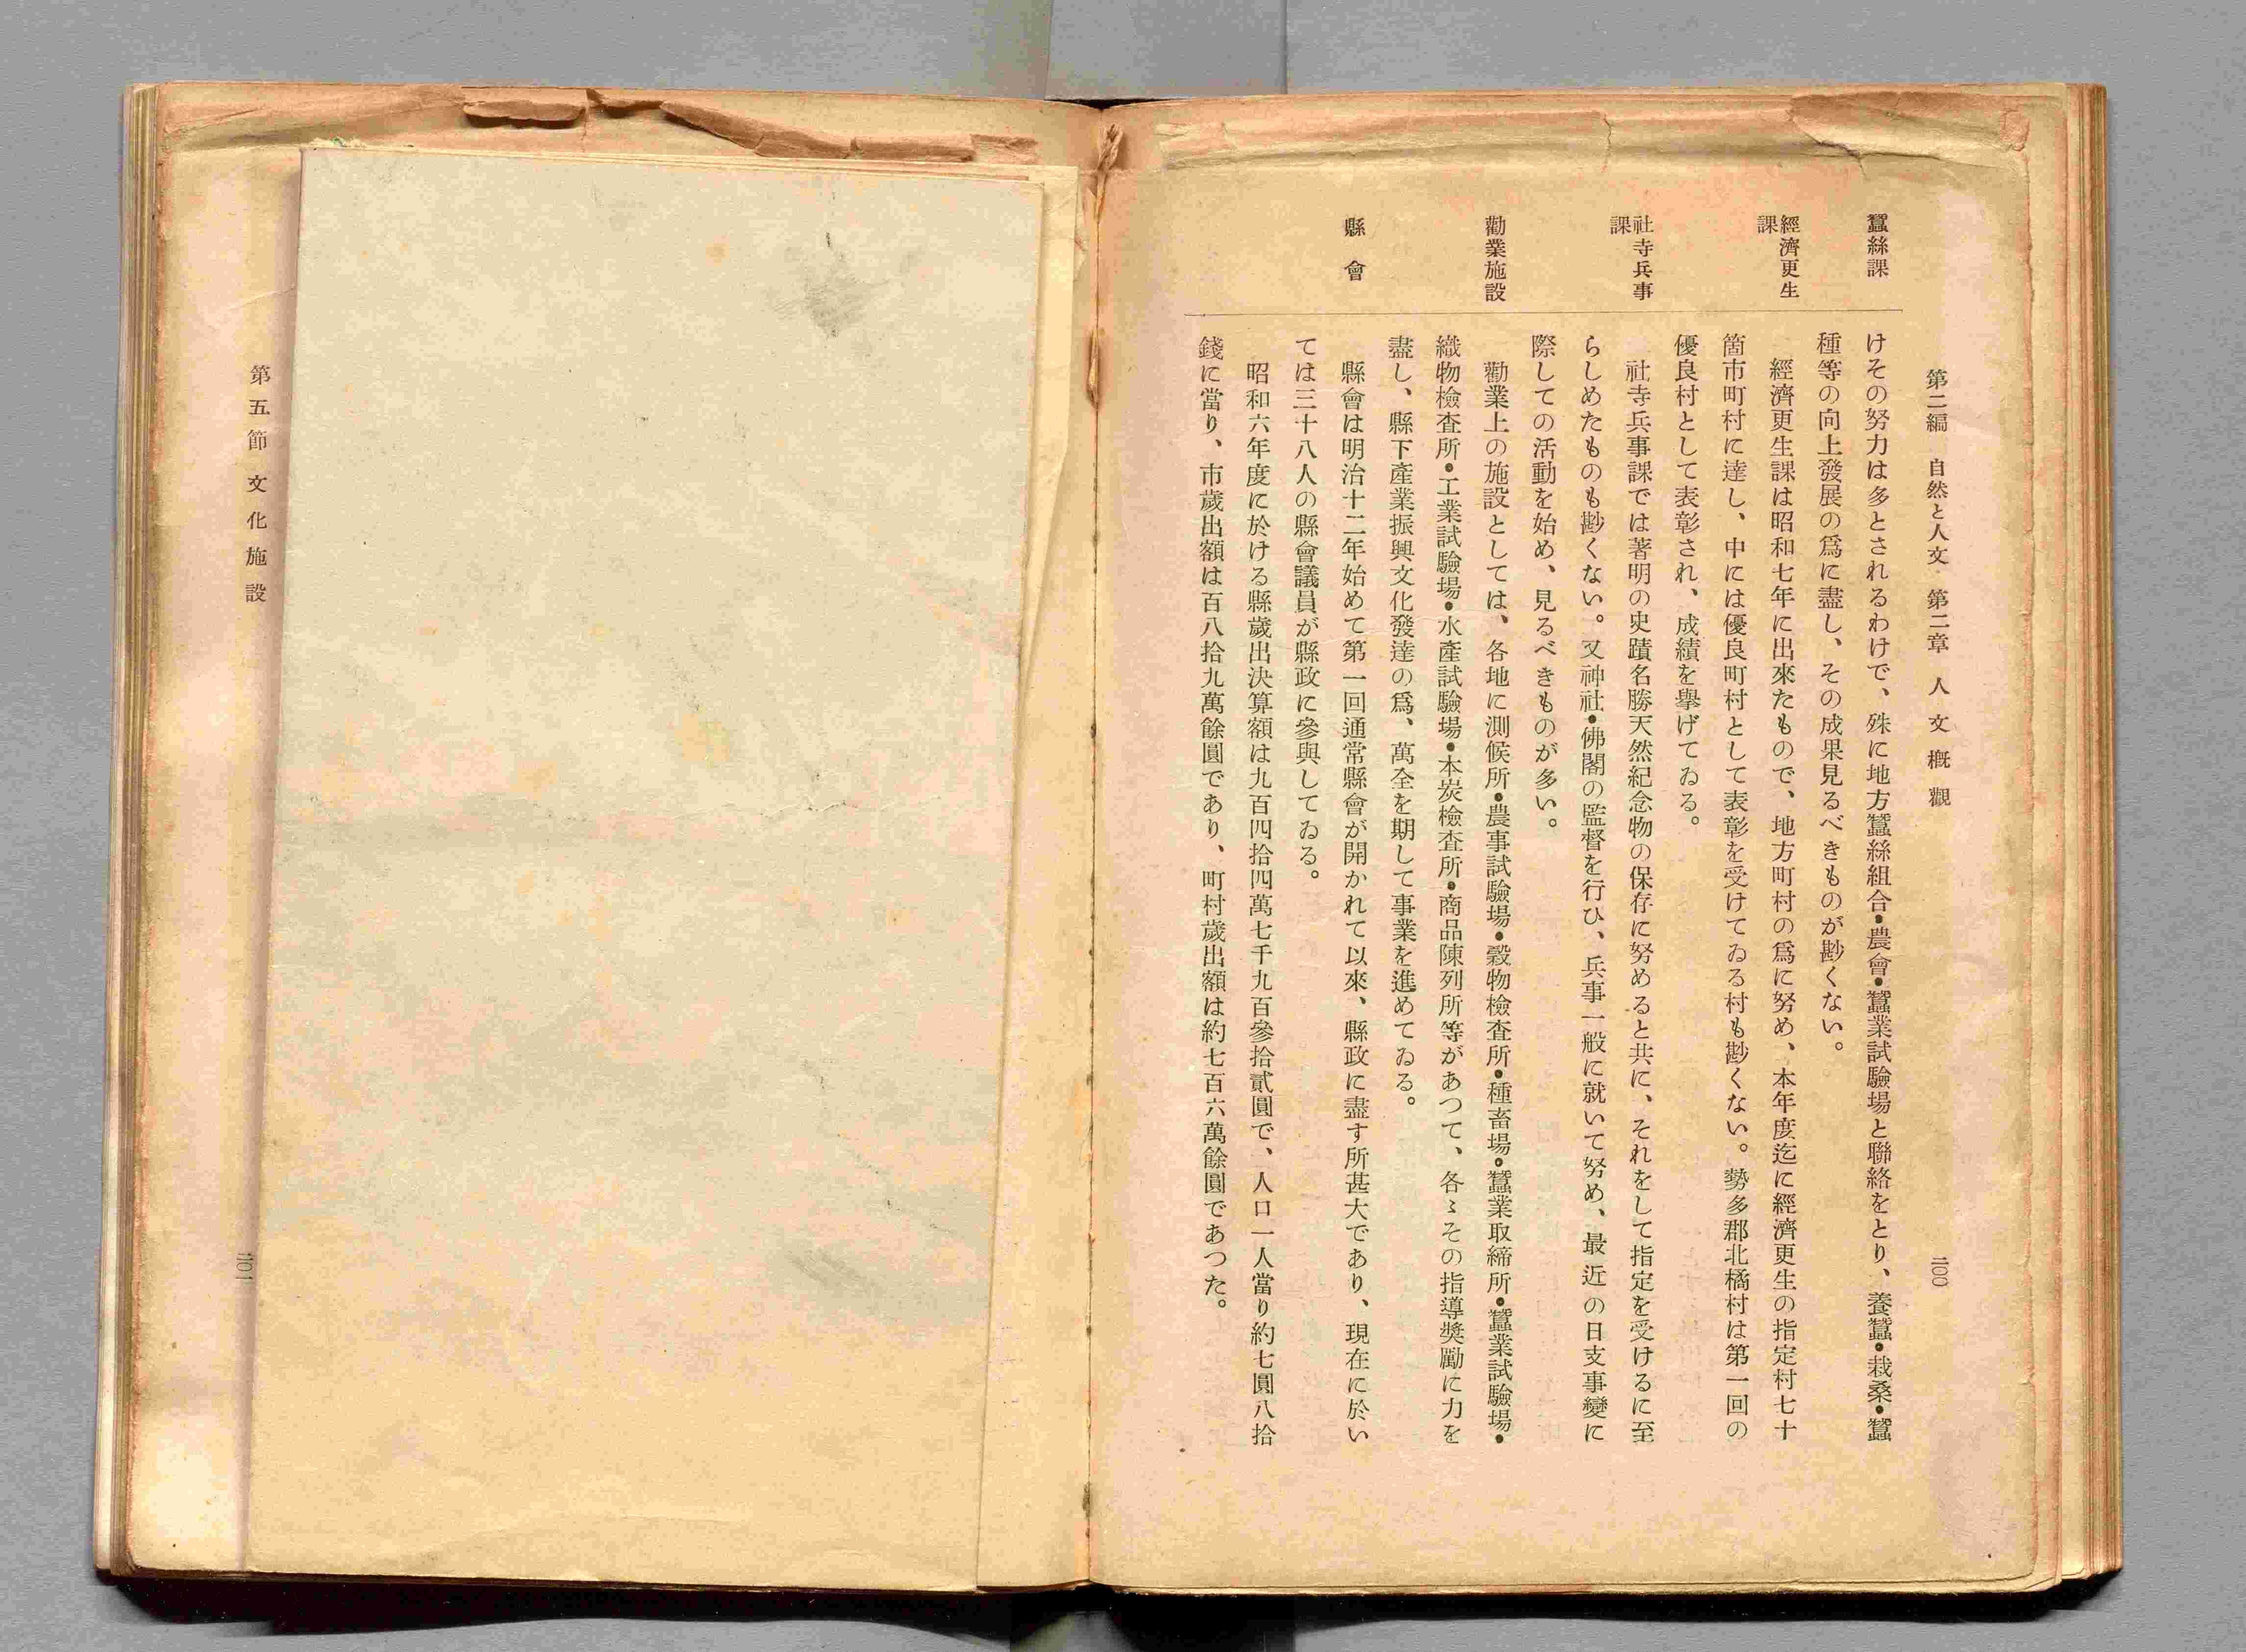 第二編 自然と人文 第二章 人文概觀
二〇〇
蠶絲課
經濟更生
課
社寺兵事
課
勸業施設
縣會
けその努力は多とされるわけで、殊に地方蠶絲組合•農會•蠶業試驗場と聯絡をとり、養蠶•栽桑•蠶
種等の向上發展の爲に盡し、その成果見るべきものが尠くない。
經濟更生課は昭和七年に出來たもので、地方町村の爲に努め、本年度迄に經濟更生の指定村七十
箇市町村に達し、中には優良町村として表彰を受けてゐる村も尠くない。勢多郡北橘村は第一回の
優良村として表彰され、成績を擧げてゐる。
社寺兵事課では著明の史蹟名勝天然紀念物の保存に努めると共に、それをして指定を受けるに至
らしめたものも尠くない。又神社•佛閣の監督を行ひ、兵事一般に就いて努め、最近の日支事變に
際しての活動を始め、見るべきものが多い。
勸業上の施設としては、各地に測候所•農事試驗場•穀物檢査所•種畜場•蠶業取締所•蠶業試驗場•
織物檢査所•工業試驗場•水產試驗場•木炭檢査所•商品陳列所等があつて、各〻その指導獎勵に力を
盡し、縣下產業振興文化發達の爲、萬全を期して事業を進めてゐる。
縣會は明治十二年始めて第一回通常縣會が開かれて以來、縣政に盡す所甚大であり、現在に於い
ては三十八人の縣會議員が縣政に參與してゐる。
昭和六年度に於ける縣歲出決算額は九百四拾四萬七千九百參拾貳圓で、人口一人當り約七圓八拾
錢に當り、市歲出額は百八拾九萬餘圓であり、町村歲出額は約七百六萬餘圓であつた。
第五節 文化施設
二〇一